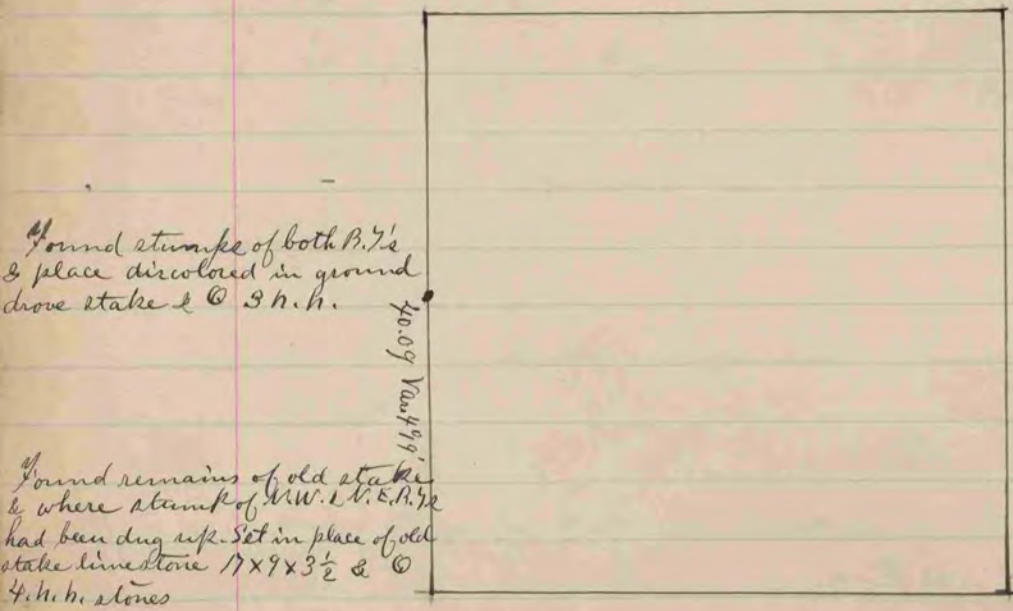 Found stumps of both B.T's
& place discolored in ground
drove stake & 3 h.h.
40.09 Var
Found remains of old stake
& where stump of N.W. & N.E. B.Ts
had been dug up. Set in place of old
stake limestone 17x9x3½ &
4.h.h. stones